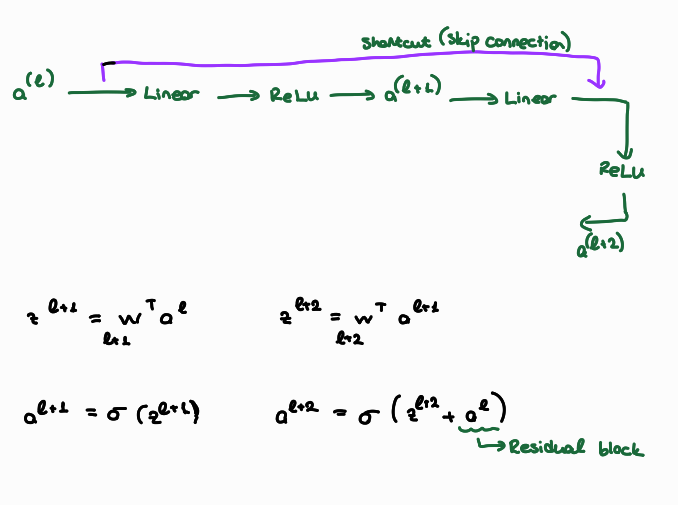 shortcut (skip connection)
a^(l) → Linear → ReLu → a^(l+1) → Linear
ReLu
a^(l+2)
z^l+1 = w^T_l+1 a^l
z^l+2 = w^T_l+2 a^l+1
a^l+1 = σ (z^l+1)
a^l+2 = σ (z^l+2 + a^l)
Residual block